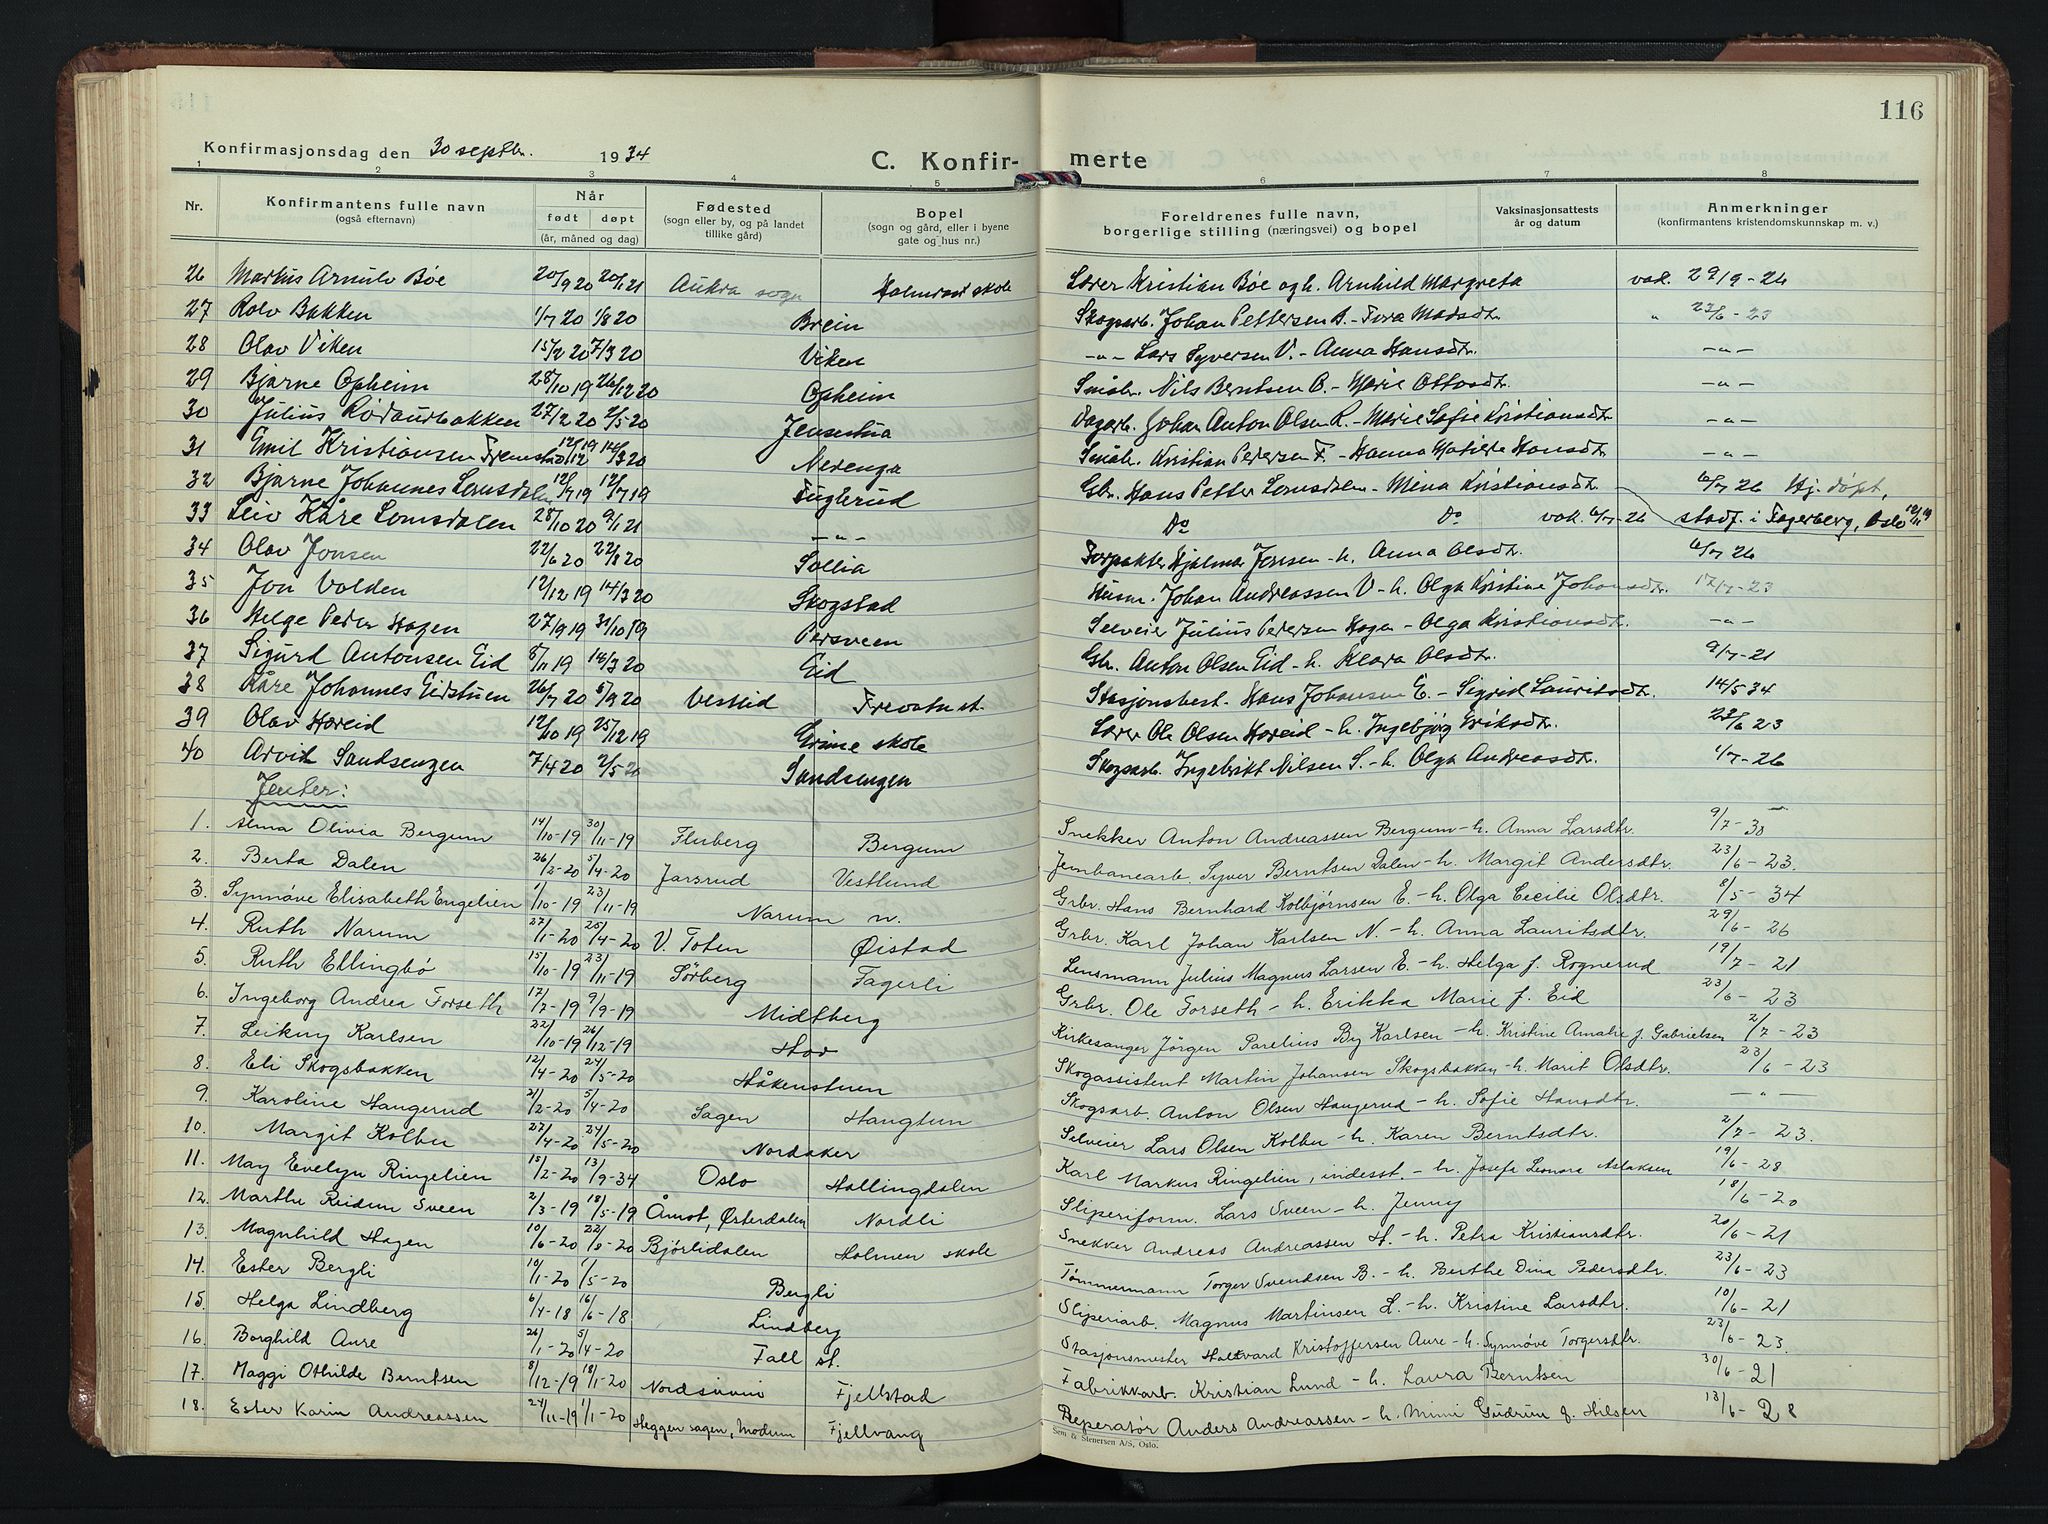 116
Konfirmasjonsdag den 30 septbr. 1934
C. Konfir- merte
1 2 3 4 5 6 7 8
Nr. Konfirmantens fulle navn (også efternavn) Når født døpt (år, måned og dag) Fødested (sogn eller by, og på landet tillike gård) Bopel (sogn og gård, eller i byene gate og hus nr.) Foreldrenes fulle navn, borgerlige stilling (næringsvei) og bopel Vaksinasjonsattests år og datum Anmerkninger (konfirmantens kristendomskunnskap m. v.)
26 Markus Arnulv Bøe 20/9 20 20/1 21 Aukra sogn skole Lærer Kristian Bøe og h. Arnhild Margreta vad. 29/9-26
27 Rolv Bakken 1/7 20 1/8 20 Brein Skogsarb. Johan Pettersen B. - Tora Madsdtr. " 23/6-23
28 Olav Viken 15/2 20 7/3 20 Viken -"- Lars Syversen V. - Anna Hansdtr. -"-
29 Bjarne Opheim 28/10 19 26/12 20 Opheim Småbr. Nils Berntsen O. - Marie Ottosdtr. -"-
30 Julius Rødaurbakken 27/2 20 2/5 20 Jensestua Dagarb. Johan Anton Olsen R. - Marie Sofie Kristiansdtr. -"-
31 Emil Kristiansen Fremstad 12/12 19 14/3 20 Nerenga Småbr. Kristian Pedersen F. - Hanna Matilde Hansdtr. -"-
32 Bjarne Johannes Lomsdalen 12/7 19 12/7 19 Fuglerud Gbr. Hans Petter Lomsdalen - Mina Kristiansdtr. 6/7 26 Hj. døpt,
33 Leiv Kåre Lomsdalen 28/10 20 9/1 21 -"- Do Do vak. 6/7-26 stadf. i Fagerberg, Oslo 12/11 19
34 Olav Jonsen 22/6 20 22/8 20 Sollia Forpakter Hjalmar Jonsen - h. Anna Olsdtr. 6/7 26
35 Jon Volden 12/12 19 14/3 20 Skogstad Husm. Johan Andreassen V - h. Olga Kristine Johansdtr. 17/7-23
36 Helge Peder Hagen 27/9 19 31/10 19 Persveen Selveier Julius Pedersen Hagen - Olga Kristiansdtr. -"-
37 Sigurd Antonsen Eid 8/11 19 14/3 20 Eid Gbr. Anton Olsen Eid - h. Klara Olsdtr. 9/7-21
38 Kåre Johannes Eidstuen 26/7 20 5/9 20 Vestlid st. Stasjonsbest. Hans Johansen E. - Sigrid Lauritsdtr. 14/5 34
39 Olav Horeid 12/10 19 25/12 19 Grime skole Lærer Ole Olsen Horeid - h. Ingebjørg Eriksdtr. 23/6 23
40 Arvid Sandsengen 7/4 20 2/5 20 Sandsengen Skogsarb. Ingebrikt Nilsen S. - h. Olga Andreasdtr. 6/7-26
Jenter:
1. Alma Olivia Bergum 14/10-19 30/11-19 Fluberg Bergum Snekker Anton Andreassen Bergum - h. Anna Larsdtr. 9/7-30
2. Berta Dalen 26/2-20 5/4-20 Jarsrud Vestlund Jernbanearb. Syver Berntsen Dalen - h. Margit Andersdtr. 23/6-23.
3. Synnøve Elisabeth Engelien 1/10-19 23/11-19 Narum n. Grbr. Hans Bernhard Kolbjørnsen E. - h. Olga Cecilie Olsdtr. 8/5-34
4. Ruth Narum 27/1-20 25/4-20 V. Toten Øistad Grbr. Karl Johan Karlsen N. - h. Anna Lauritsdtr. 29/6-26
5. Ruth Ellingbø 15/10-19 23/11-19 Sørberg Fagerli Lensmann Julius Magnus Larsen E. - h. Helga f. Rognerud 19/7-21
6. Ingeborg Andrea Forseth 17/7-19 9/9-19 Midtberg Grbr. Ole Forseth - h. Erikka Marie f. Eid 23/6-23
7. Leikny Karlsen 22/10-19 26/12-19 Hov Kirkesanger Jørgen Parelius By Karlsen - h. Kristine Amalie f. Gabrielsen 2/7-23
8. Eli Skogsbakken 12/4-20 24/5-20 Håkenstuen Skogassistent Martin Johansen Skogsbakken - h. Marit Olsdtr. 23/6-23
9. Karoline Haugerud 21/2-20 5/4-20 Sagen Haugtun Skogsarb. Anton Olsen Haugerud - h. Sofie Hansdtr. -"-
10. Margit Kolbu 27/4-20 24/5-20 Nordaker Selveier Lars Olsen Kolbu - h. Karen Berntsdtr. 2/7-23.
11. May Evelyn Ringelien 15/2-20 13/9-34 Oslo Hallingdalen Karl Markus Ringelien, indesst. - h. Josefa Leonora Aslaksen 19/6-28
12. Marthe Reidun Sveen 2/3-19 18/5-19 Åmot, Østerdalen Nordli Sliperiform. Lars Sveen - h. Jenny 18/6-20
13. Magnhild Hagen 10/6-20 22/8-20 Bjørlidalen Holmen skole Snekker Andreas Andreassen H. - h. Petra Kristiansdtr. 20/6-21
14. Ester Bergli 10/1-20 1/5-20 Bergli Tømmermann Torger Svendsen B. - h. Berthe Dina Pedersdtr. 23/6-23
15. Helga Lindberg 6/4-18 16/6-18 Lindberg Sliperiarb. Magnus Martinsen L. - h. Kristine Larsdtr. 10/6-21
16. Borghild Aure 26/1-20 5/4-20 Fall st. Stasjonsmester Hallvard Kristoffersen Aure - h. Synnøve Torgersdtr. 23/6-23.
17. Maggi Othilde Berntsen 8/12-19 18/1-20 Nordsinni Fjellstad Fabrikkarb. Kristian Lund - h. Laura Berntsen 30/6-21
18. Ester Karin Andreassen 24/11-19 1/1-20 Heggen sogn, Modum Fjellvang Reperatør Anders Andreassen - h. Mimi Gudrun f. Nilsen 13/6-28
Sem & Stenersen A/S, Oslo.